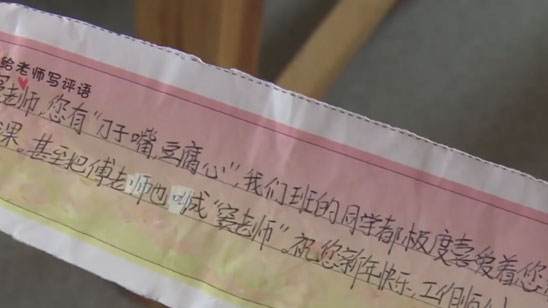 给老师写评语
老师,您有“刀子嘴,豆腐心”,我们班的同学都极度喜爱着您
课,甚至把傅老师也喊成“窦老师”。祝您新年快乐,工作